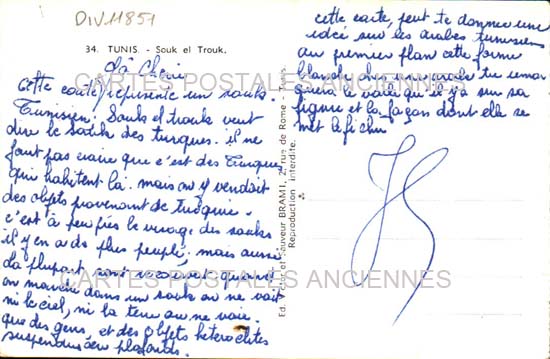 DIV11851
34. TUNIS. - Souk el Trouk.
La Cherie
Cette carte, représente un souk.
Tunisien. Souk el trouk veut
dire le souk des turques. il ne
faut pas croire que c'est des Turques
qui habitent là. mais on y vendait
des objets provenant de turquie.
c'est à peu près le visage des souks
il y en a de plus peuplé. mais aussi
la plupart sont recouvert quand
on marche dans un souk on ne voit
ni le ciel, ni la terre on ne voit
que des gens, et des objets heteroclites
suspendus au plafonds.
Ed. Victor et Sauveur BRAMI, 2, rue de Rome - Tunis
Reproduction interdite.
cette carte, peut te donner une
idée sur les arabes tunisiens
au premier plan cette forme
blanche une tu remar
quera le voile qu'il y a sur sa
figure et la façon dont elle se
met le fichu
CARTES POSTALES ANCIENNES
CARTES POSTALES ANCIENNES